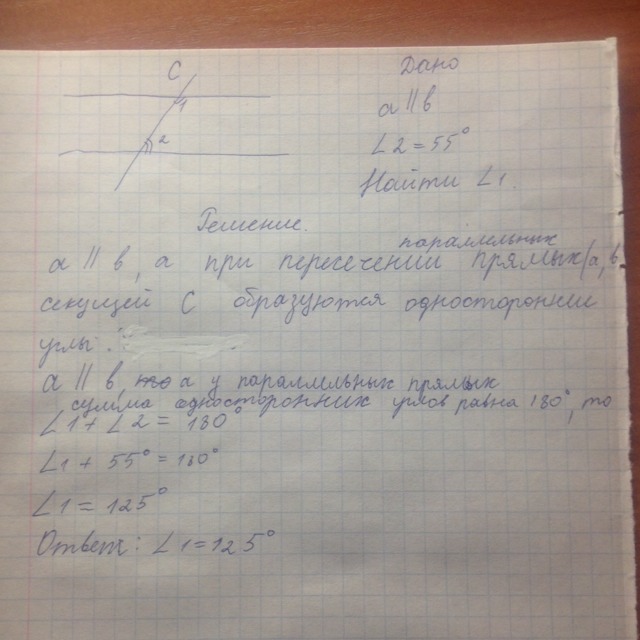 С
1
2
Дано
a || b
∠2 = 55°
Найти ∠1.
Решение.
параллельных
a || b, а при пересечении прямых (a, b
секущей С образуются односторонние
углы.
a || b, то а у параллельных прямых
сумма односторонних углов равна 180°, то
∠1 + ∠2 = 180°
∠1 + 55° = 180°
∠1 = 125°
Ответ: ∠1 = 125°